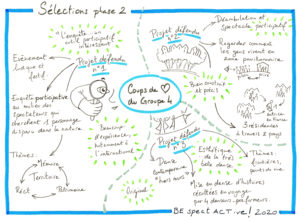 Sélections phase 2
L'enquête
outil participatif
intéressant
Projet défendu
n°1
Evénement
ludique et
festif
Enquête participative
au milieu des
spectateurs qui
cherchent 1 personnage
disparu dans la nature
Thèmes
Mémoire
Territoire
Récit
Patrimoine
Beaucoup
d'expérience,
Intéressant à
l'international
Coups de
du Groupe 4
Projet défendu
n°2
Déambulation et
spectacle participatif
Regarder comment
vivent en
zone pavillonnaire
Bien construit
et précis
3 résidences
à travers 3 pays
Thèmes :
Projet défendu
n°3
Danse
Contemporaine
hors murs
Original
Esthétique
de la
très belle danse
Mise en danse d'histoires
récoltées en voyage
par 4 danseurs-performeurs
BE SpectACTive! 2020